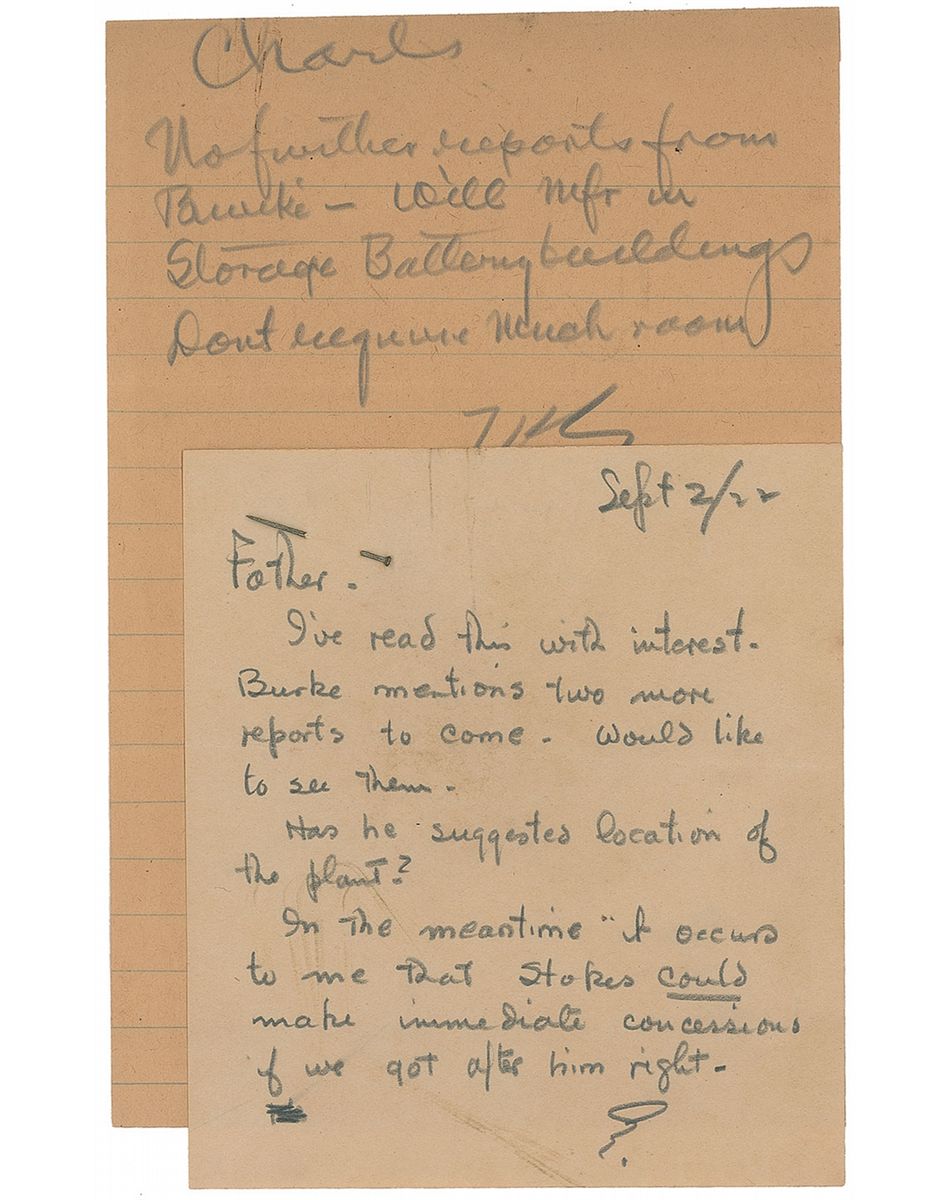 Charls
No further reports from
Burke – Will Mfr in
Storage Battery buildings
Dont require Much room
Sept 2/22
Father.
I've read this with interest.
Burke mentions two more
reports to come. Would like
to see them.
Has he suggested location of
the plant?
In the meantime it occurs
to me that Stokes could
make immediate concessions
if we got after him right.